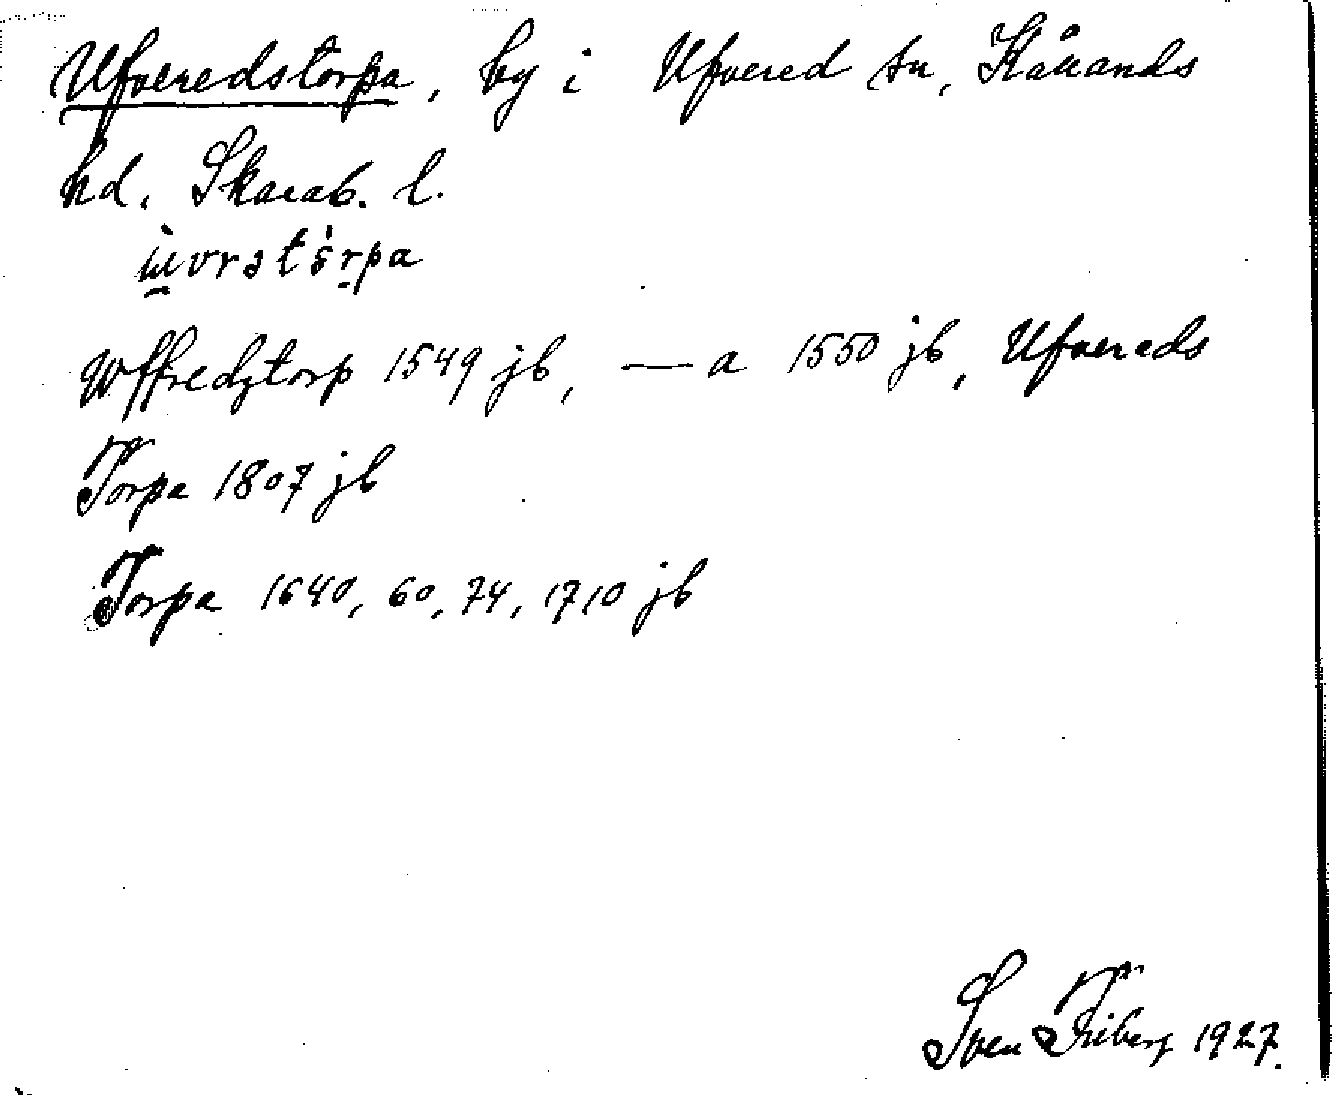 Ufveredstorpa, by i Ufvered sn, Kållands
hd. Skarab. l.
Wffredztorp 1549 jb, — a 1550 jb, Ufvereds
Torpa 1807 jb
Torpa 1640, 60, 74, 1710 jb
Sven Friberg 1927.